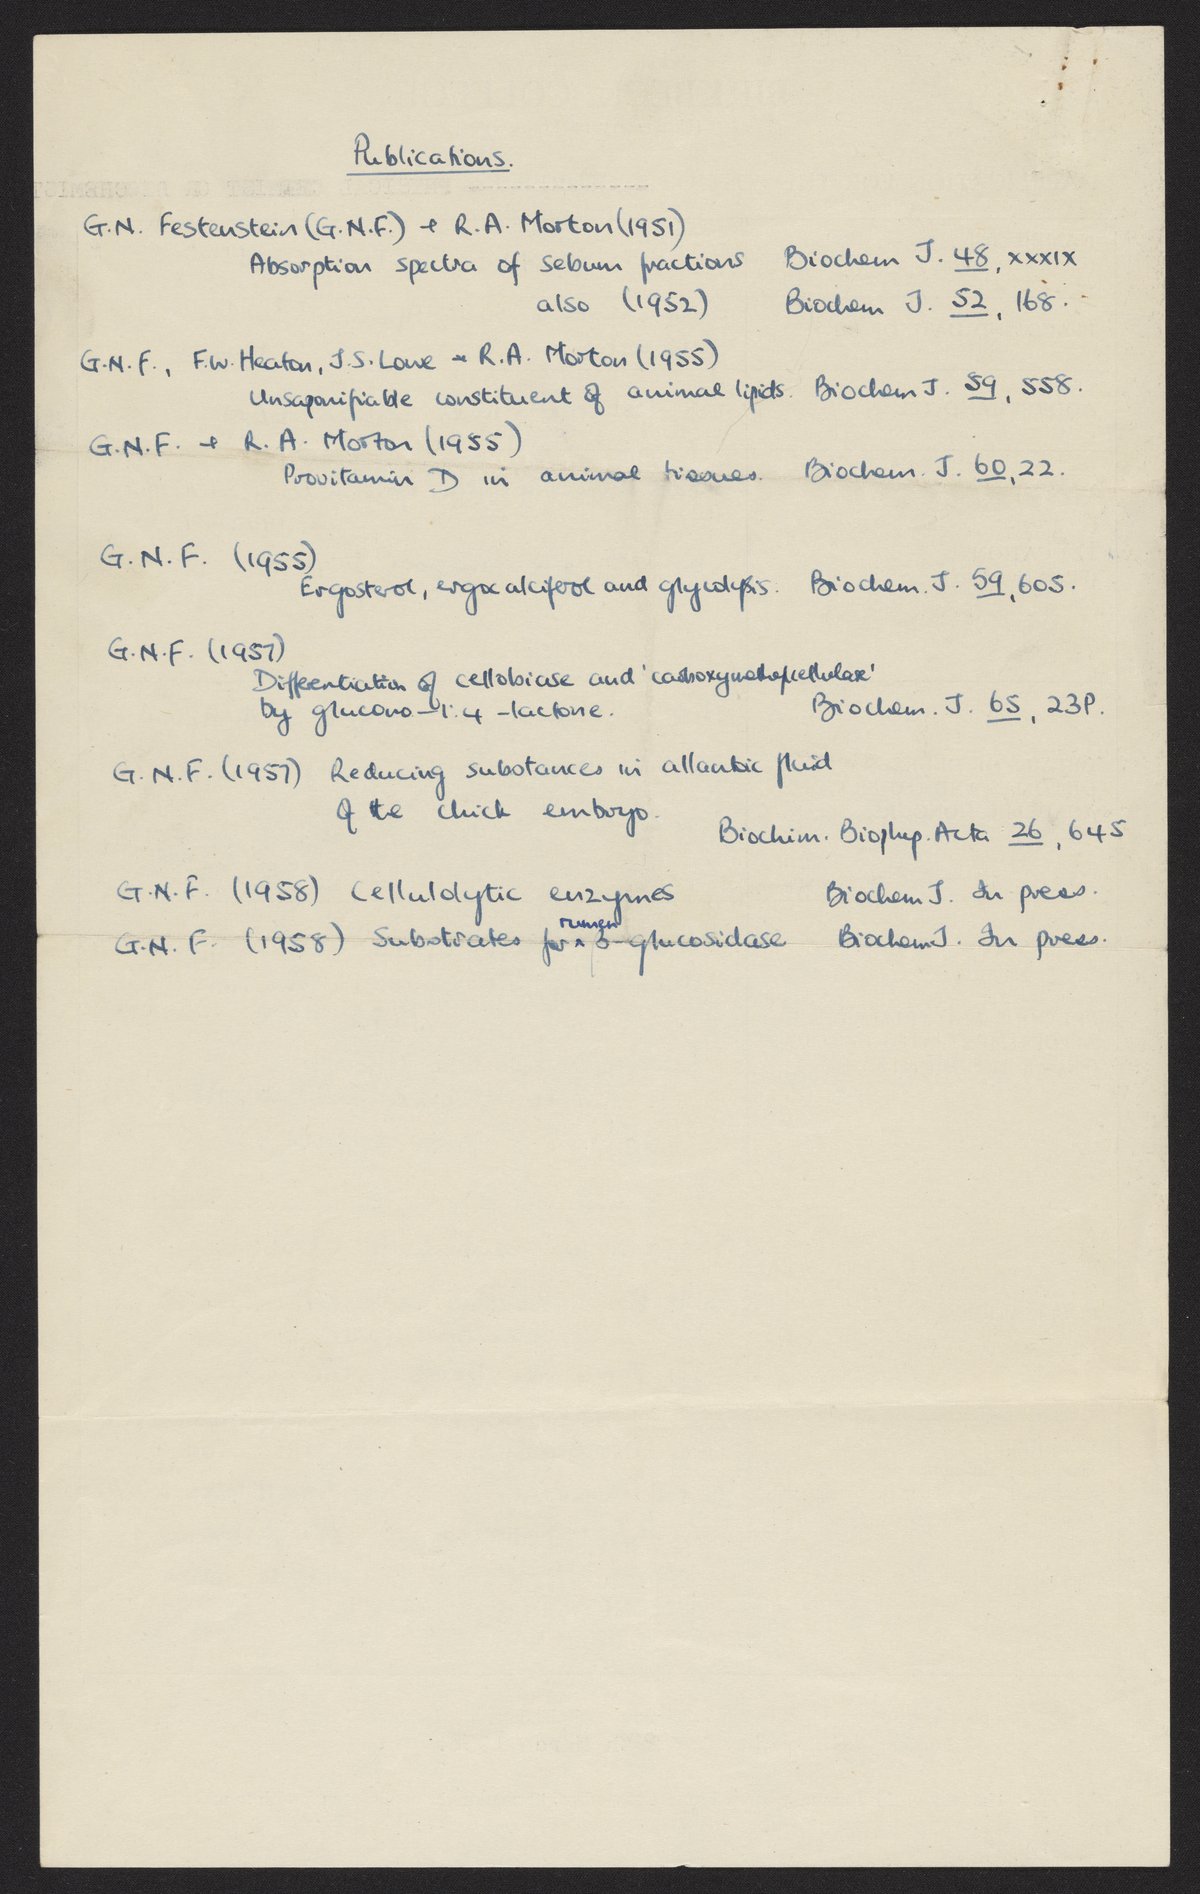 Publications.
G.N. Festenstein (G.N.F.) & R.A. Morton (1951)
Absorption spectra of sebum fractions Biochem J. 48, xxxix
also (1952) Biochem J. 52, 168.
G.N.F., F.W. Heaton, J.S. Lowe & R.A. Morton (1955)
Unsaponifiable constituent of animal lipids. Biochem J. 59, 558.
G.N.F. & R.A. Morton (1955)
Provitamin D in animal tissues. Biochem. J. 60, 22.
G.N.F. (1955)
Ergosterol, ergocalciferol and glycolysis. Biochem. J. 59, 605.
G.N.F. (1957)
Differentiation of cellobiase and 'carboxymethylcellulase'
by glucono-1:4-lactone. Biochem. J. 65, 23P.
G.N.F. (1957) Reducing substances in allantoic fluid
of the chick embryo.
Biochim. Biophys. Acta 26, 645
G.N.F. (1958) Cellulolytic enzymes Biochem J. In press.
G.N.F. (1958) Substrates for rumen β-glucosidase Biochem J. In press.